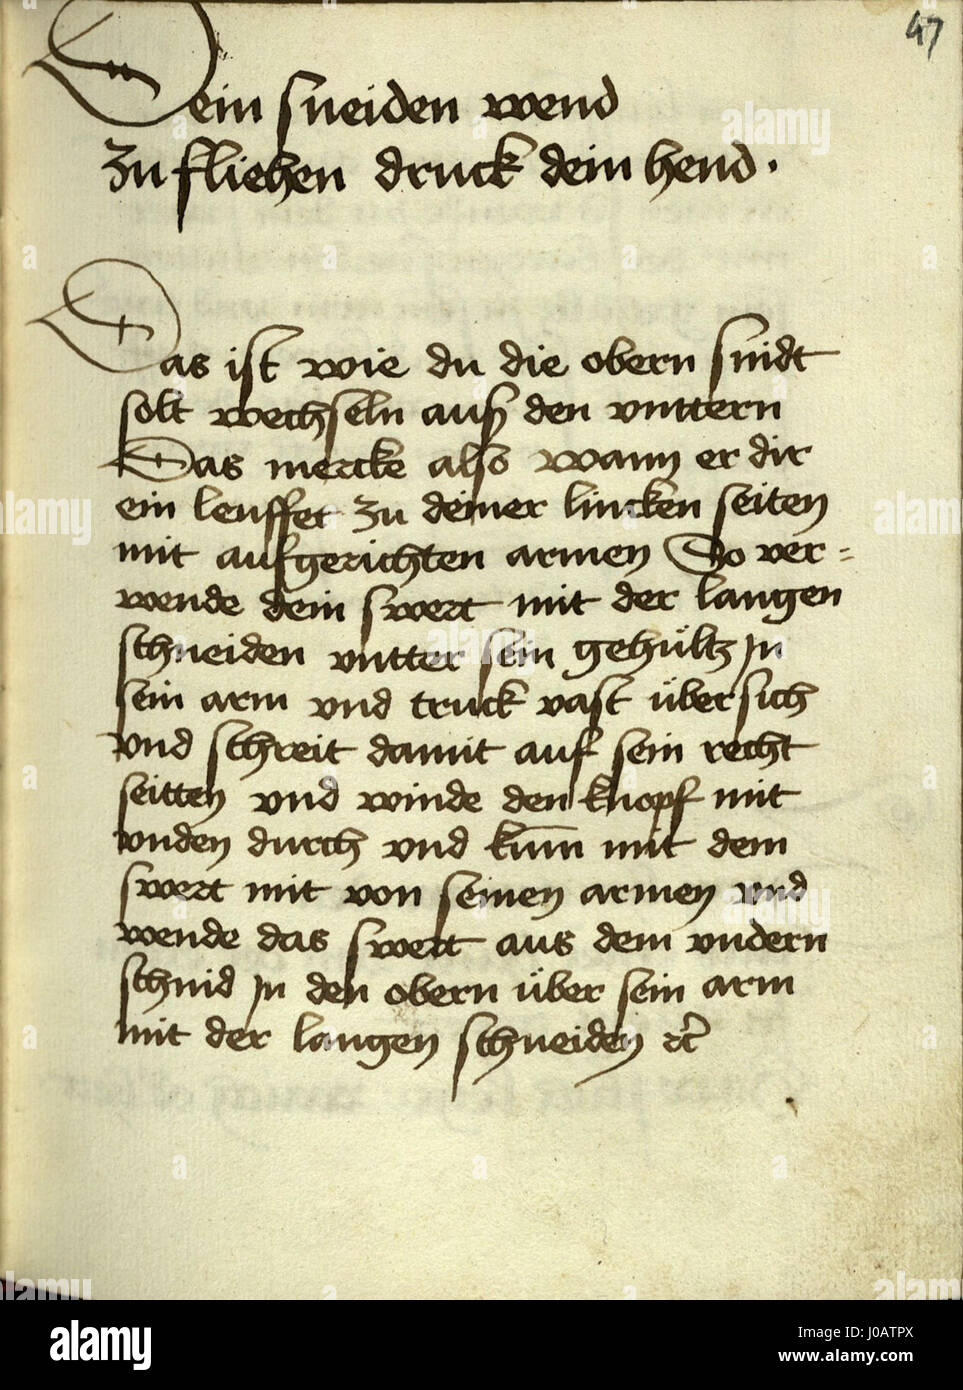 47
Dein sneiden wend
zu fliehen druck dein hend .
Das ist wie du die obern snidt
solt wechseln auß den vnttern
Das mercke also wann er dir
ein leuffet zu deiner lincken seiten
mit aufgerichten armen So ver=
wende dein swert mit der langen
schneiden vntter sein gehültz jn
sein arm vnd truck vast übersich
vnd schreit damit auf sein recht
seitten vnd winde den knopf mit
vnden durch vnd kum̅ mit dem
swert mit von seinen armen vnd
wende das swert aus dem vndern
schnid jn den obern über sein arm
mit der langen schneiden ꝛc̃
alamy
J0ATPX
www.alamy.com